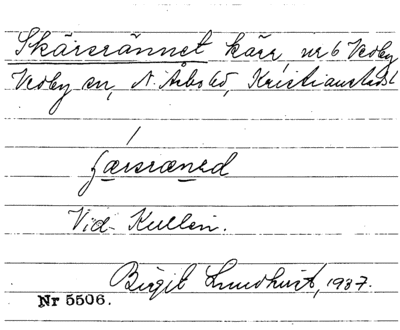 Skärsrännet kärr, nr 6 Vedby
Vedby sn, N. Åsbo hd, Kristianstads l
Vid Kullen.
Birgit Lundqvist, 1937.
Nr 5506.